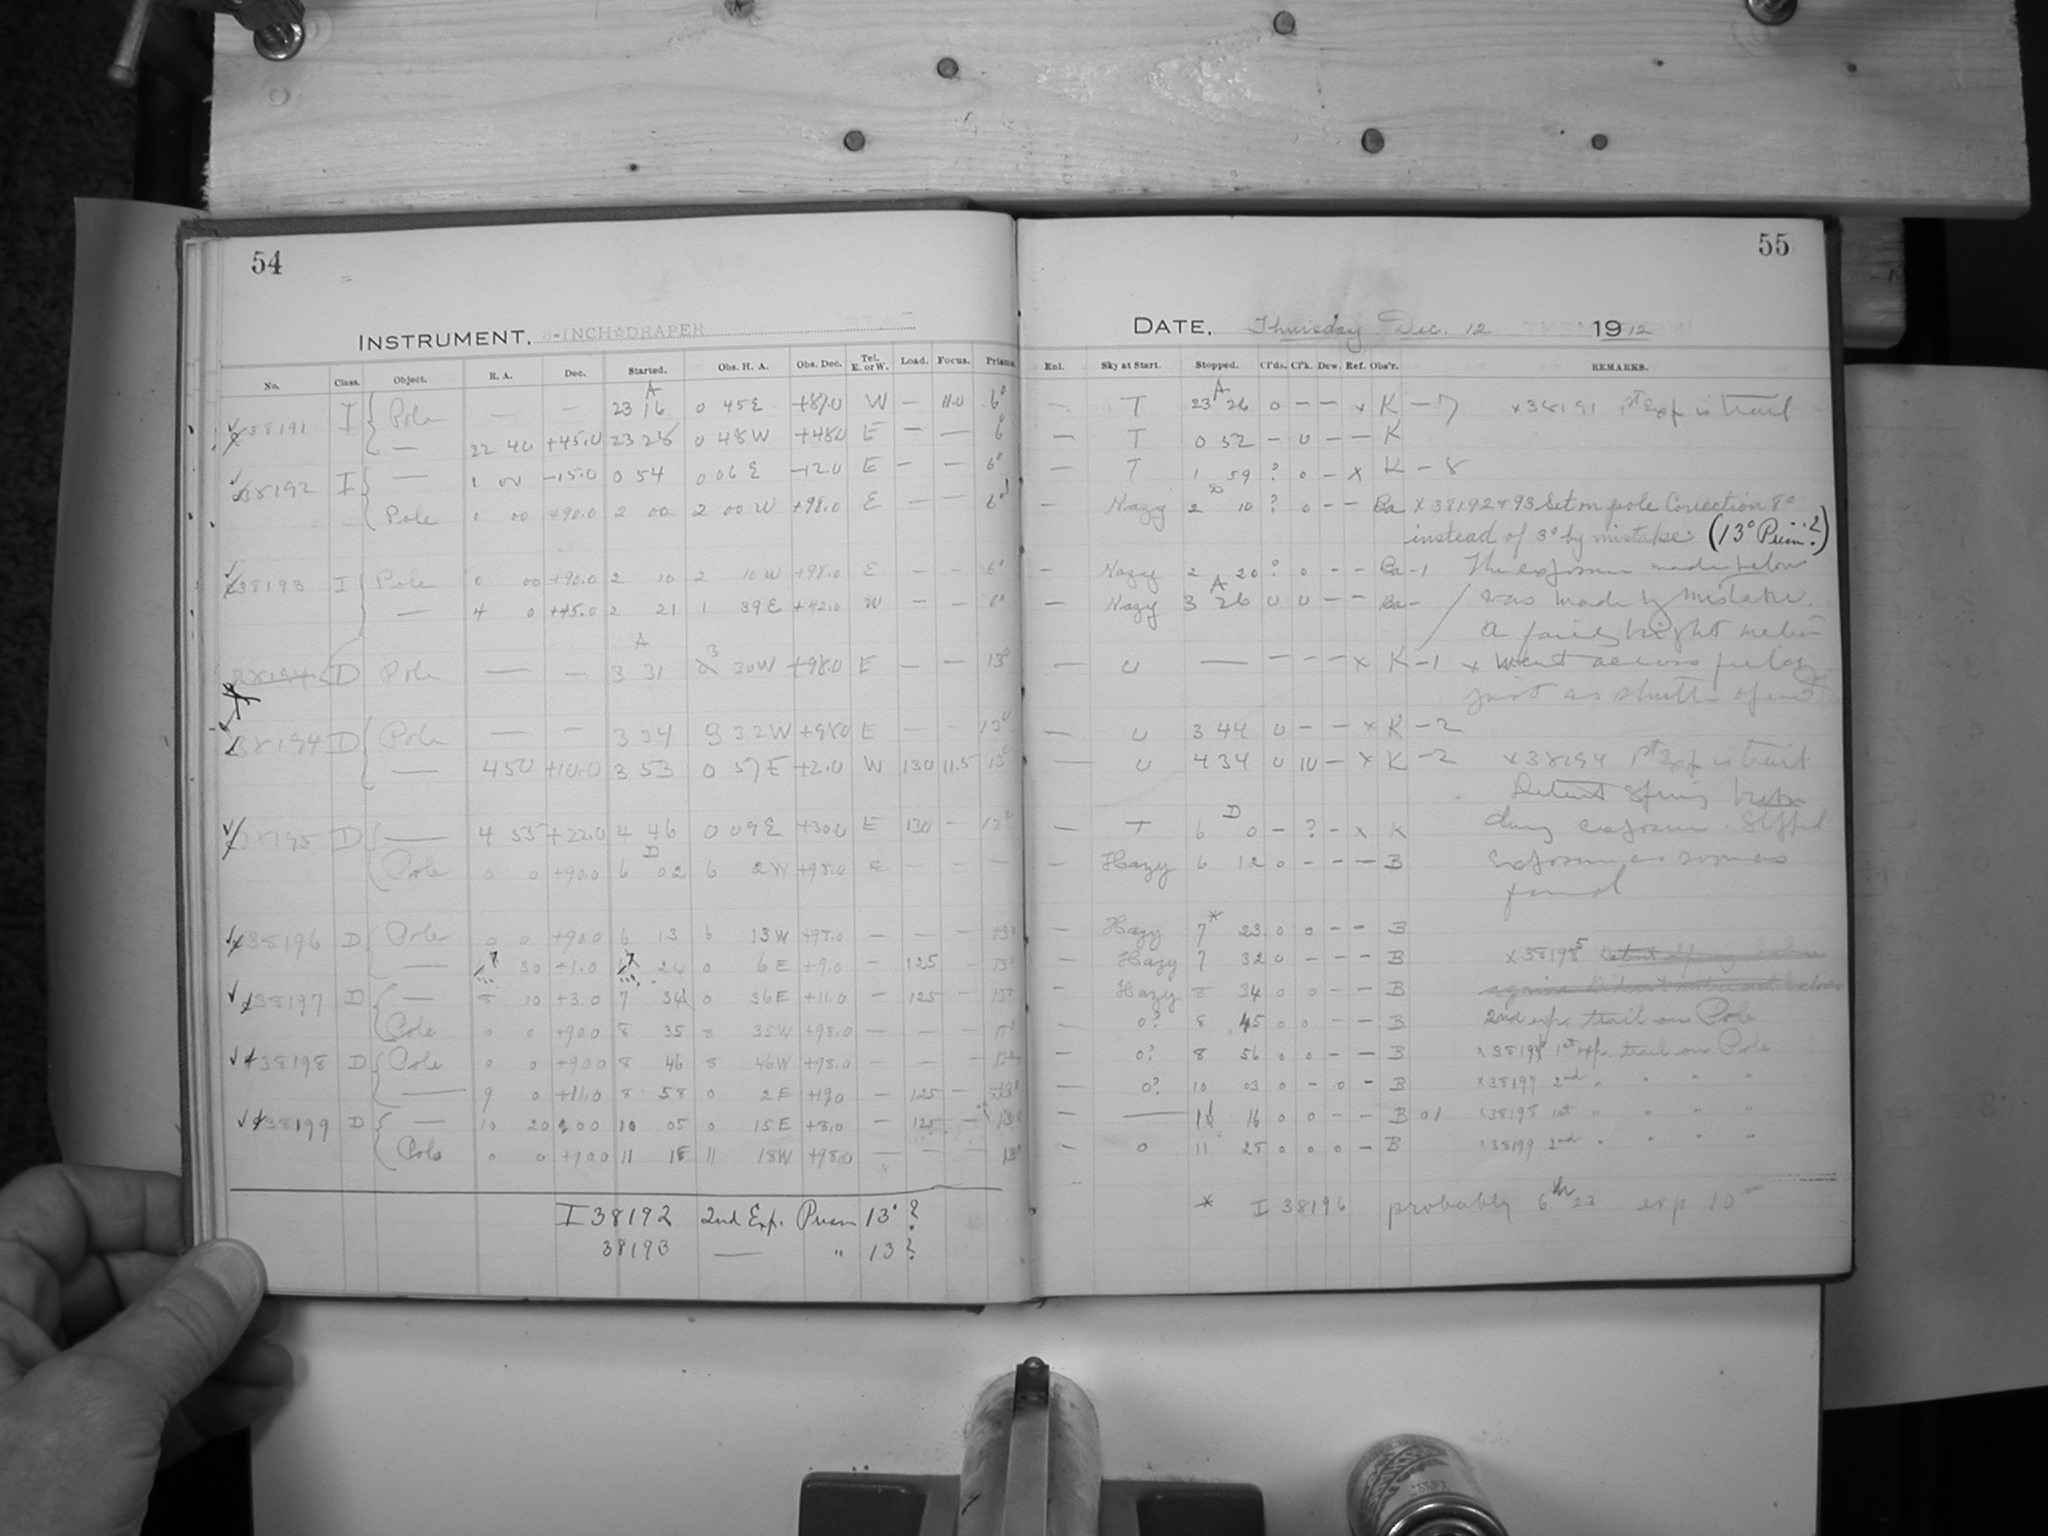 54
INSTRUMENT. 8-INCH DRAPER
No. Class. Object. R. A. Dec. Started. Obs. H. A. Obs. Dec. Tel. E. or W. Load. Focus. Prisms.
A
38191 I Pole — — 23 16 0 45 E +87.0 W — 11.0 6°
— 22 40 +45.0 23 28 0 48 W +48.0 E — — 6°
38192 I — 1 00 -15.0 0 54 0 06 E -12.0 E — — 6°
Pole 0 00 +90.0 2 00 2 00 W +98.0 E — — 6°
38193 I Pole 0 00 +90.0 2 10 2 10 W +98.0 E — — 6°
— 4 0 +45.0 2 21 1 39 E +42.0 W — — 6°
A
38194 D Pole — — 3 31 3 30 W +98.0 E — — 13°
38194 D Pole — — 3 34 3 32 W +98.0 E — — 13°
— 4 50 +10.0 3 53 0 57 E +2.0 W 130 11.5 13°
38195 D — 4 55 +22.0 4 46 0 09 E +30.0 E 130 — 13°
D
Pole 0 0 +90.0 6 02 6 2 W +98.0 E — — —
38196 D Pole 0 0 +90.0 6 13 6 13 W +98.0 — — — 13°
— 7 30 +1.0 7 24 0 6 E +9.0 — 125 — 13°
38197 D — 8 10 +3.0 7 34 0 36 E +11.0 — 125 — 13°
Pole 0 0 +90.0 8 35 8 35 W +98.0 — — — 13°
38198 D Pole 0 0 +90.0 8 46 8 46 W +98.0 — — — 13°
— 9 0 +11.0 8 58 0 2 E +19.0 — 125 — 13°
38199 D — 10 20 10 05 0 15 E +8.0 — 125 — 13°
Pole 0 0 +90.0 11 18 11 18 W +98.0 — — — 13°
I 38192 2nd Exp. Prism 13° ?
38193 — " 13 ?
55
DATE. Thursday Dec. 12 1912
Enl. Sky at Start. Stopped. Cl'ds. Cl'k. Dew. Ref. Obs'r. REMARKS.
A
— T 23 26 0 — — x K — 7 x 38191 1st Exp is trail
— T 0 52 — 0 — — K
— T 1 59 ? 0 — x K — 8
D
— Hazy 2 10 ? 0 — — Ba x 38192 + 93 Set on pole Correction 8°
instead of 3° by mistake. (13° Prism?)
— Hazy 2 20 ? 0 — — Ba — 1 The exposure made below
A
— Hazy 3 26 0 0 — — Ba — was made by mistake.
A fairly bright meteor
— 0 — — — — x K — 1 x went across field
just as shutter opened
— 0 3 44 0 — — x K — 2
— 0 4 34 0 10 — x K — 2 x 38194 1st Exp is trail
Detent spring
D
— T 6 0 — ? — x K exposure.
— Hazy 6 12 0 — — — B exposure as soon as
found
— Hazy 7* 23 0 0 — — B
— Hazy 7 32 0 — — — B x 38195 Detent Spring
— Hazy 8 34 0 0 — — B
— 0? 8 45 0 0 — — B 2nd exp. trail on Pole
— 0? 8 56 0 0 — — B 1st exp. trail on Pole
— 0? 10 03 0 — 0 — B x 38197 2nd " " " "
— 11 16 0 0 — — B x 38198 1st " " " "
— 0 11 28 0 0 0 — B x 38199 2nd " " " "
* I 38196 probably 6h 23 exp 10m